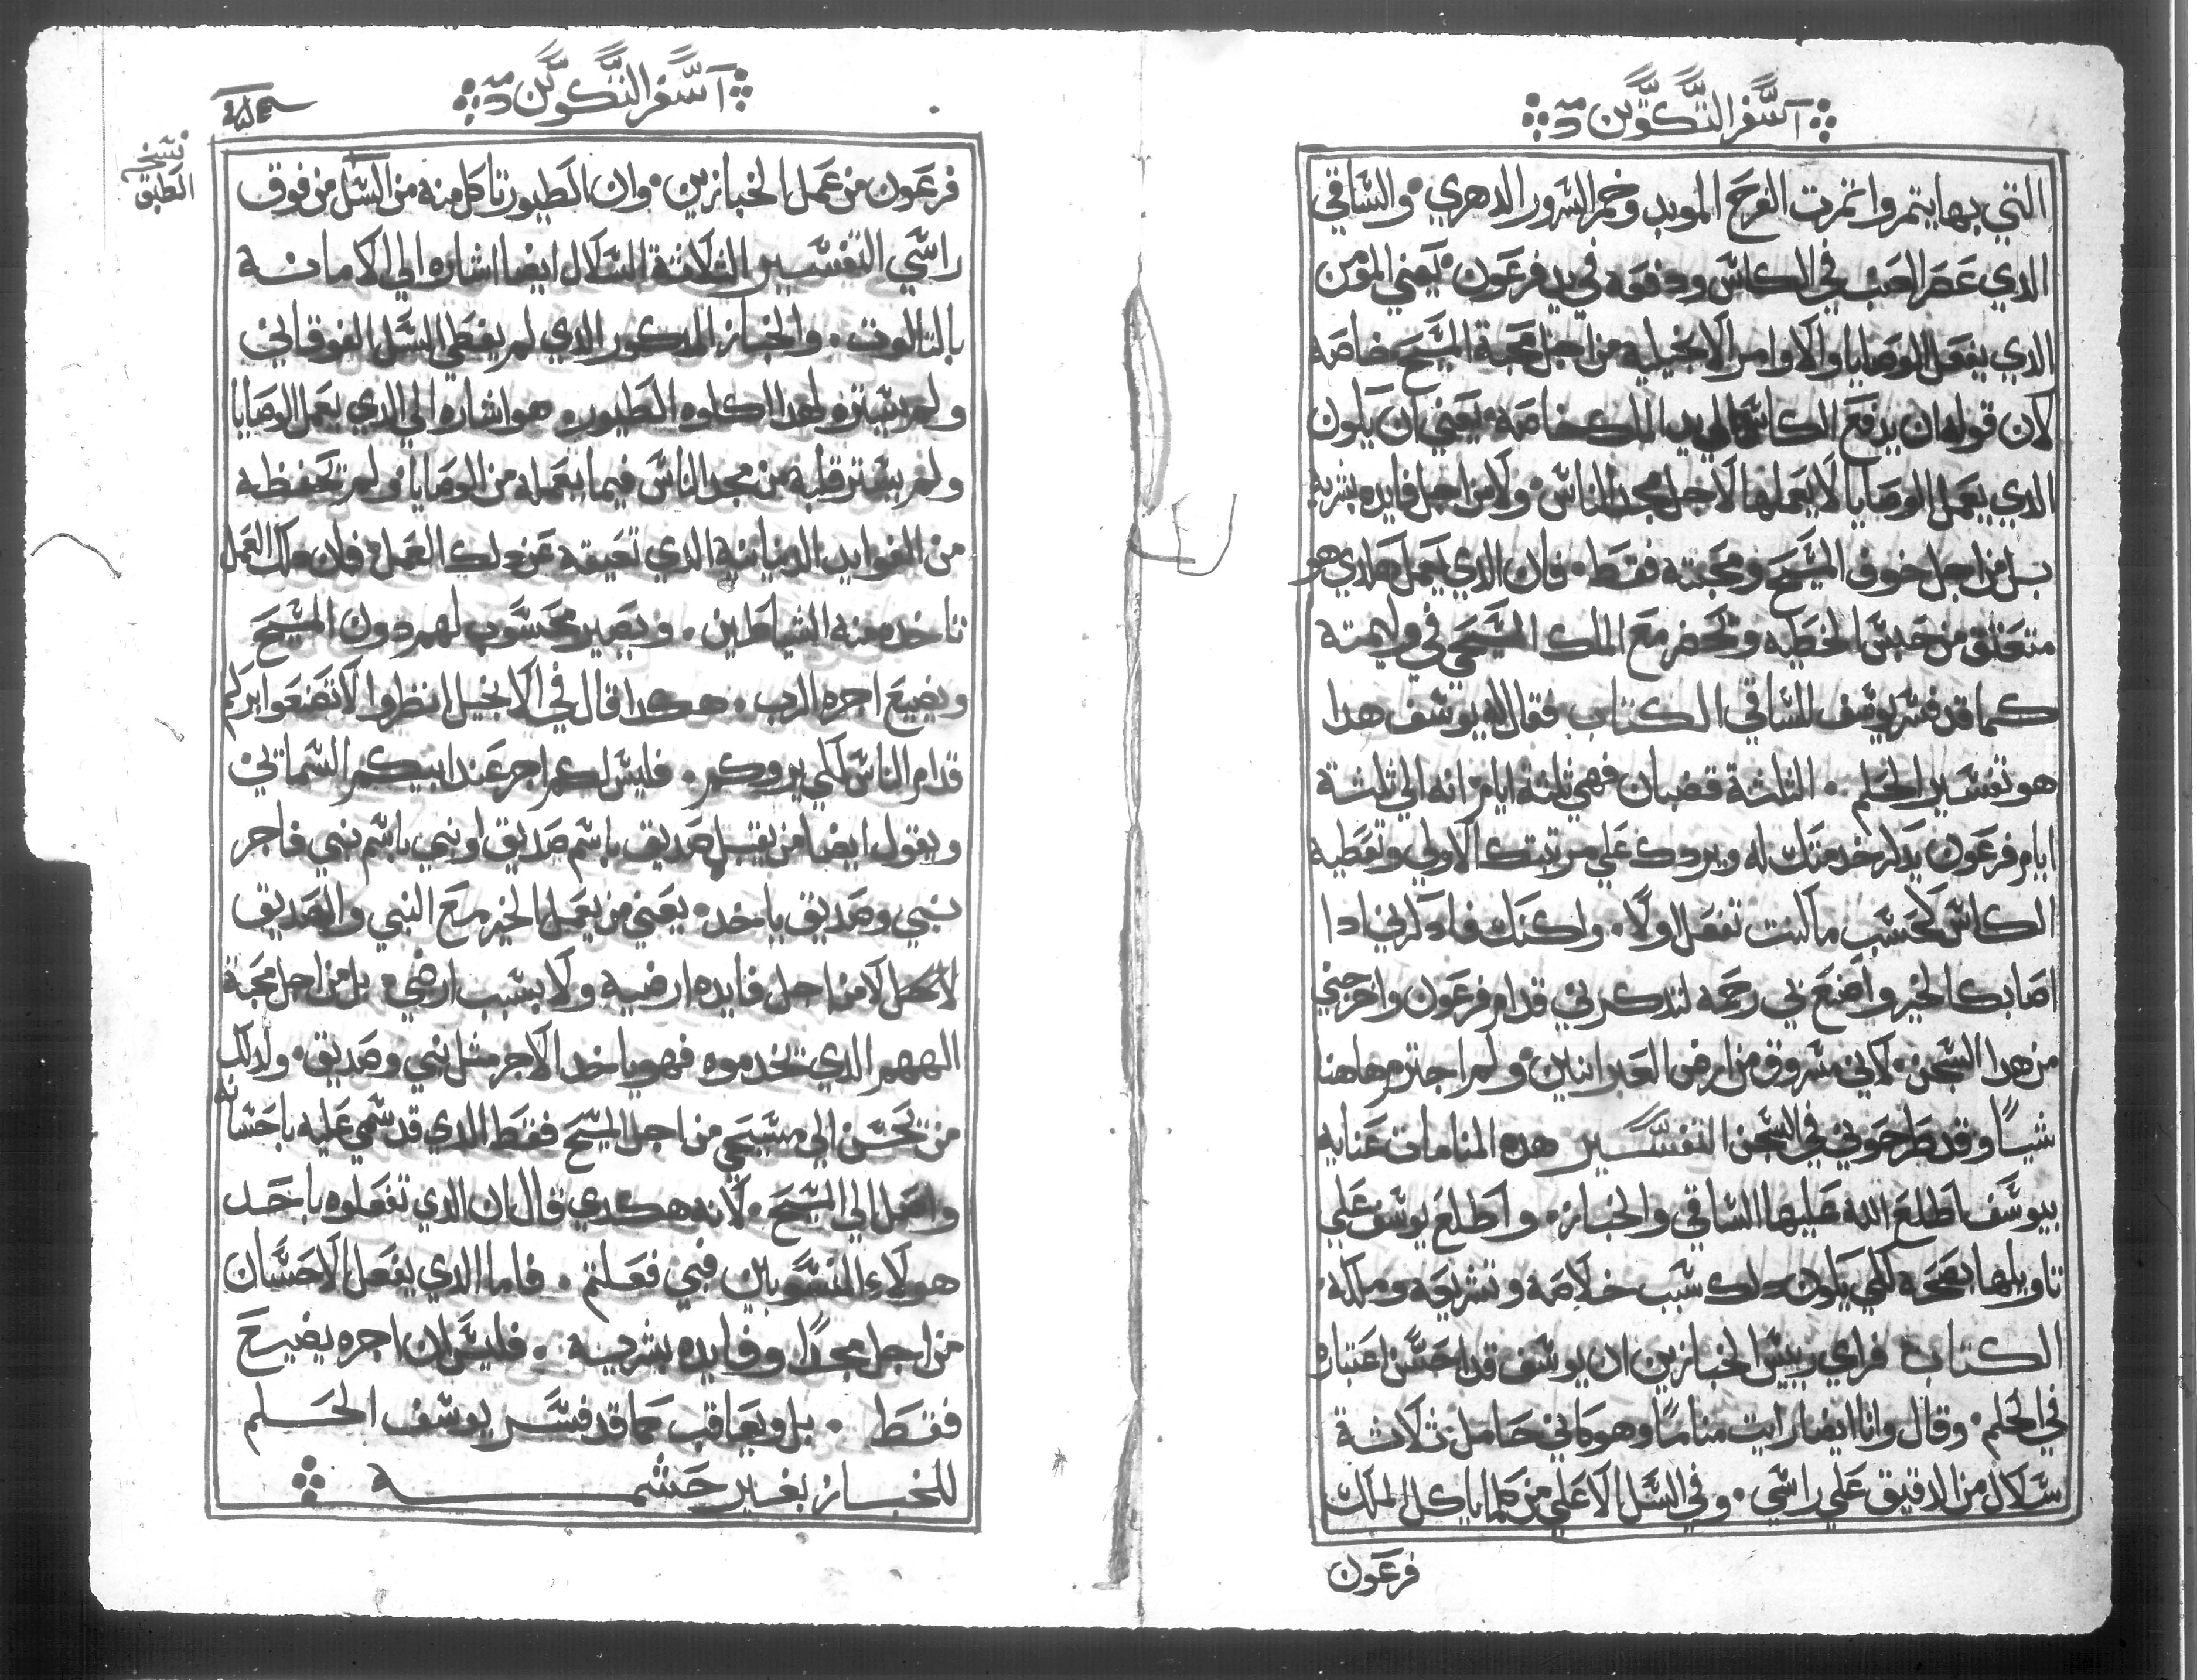 آسفر التكوين
التي بها يتمروا تمرت الفرح الموبد وخمر السرور الدهري · والساقي
الدي عصر العنب في الكاس ودفعه في يد فرعون · يعني المومن
الدي يفعل الوصايا والاوامر الانجيليه من اجل محبة المسيح خاصه
لان قوله ان يدفع الكاس الي يد الملك خاصه · يعني ان يكون
الدي يعمل الوصايا لا يعملها لاجل مجد الناس · ولا من اجل فايده بشريه
بل من اجل خوف المسيح ومحبته فقط · فان الدي يعمل هكدي هو
منعتق من حبس الخطيه ويحضر مع الملك المسيحي في وليمته
كما قد فسر يوسف للساقي الكتاب فقال له يوسف هدا
هو تفسير الحلم · التلتة قضبان فهي تلتة ايام انه الي تلتة
ايام فرعون يدكر خدمتك له ويردك علي مرتبتك الاولي وتعطيه
الكاس كحسب ما كنت تفعل اولا · ولكنك فادكرني ادا
اصابك الخير واصنع بي رحمه لتدكرني قدام فرعون واخرجني
من هدا السجن · لاني مسروق من ارض العبرانيين · ولم اجترم هاهنا
شياً وقد طرحوني في السجن التفسير هده المنامات عنايه
بيوسف اطلع الله عليها الساقي والخباز · واطلع يوسف علي
تاويلها بصحه لكي يكون دلك سبب خلاصه وتشريفه وملكه ·
الكتاب فراي رييس الخبازين ان يوسف قد احسن اعتباره
في الحلم · وقال وانا ايضا رايت مناماً وهو كاني حامل تلاتة
سلال من الدقيق علي راسي · وفي السل الاعلي من كلما ياكل الملك
فرعون
آسفر التكوين
نسخه
الطبق
فرعون من عمل الخبازين · وان الطيور تاكل منه من السل من فوق
راسي التفسير التلاتة السلال ايضا اشاره الي الامانه
بالتالوت · والخباز المدكور الدي لم يغطي السل الفوقاني
ولم يستره لهدا اكلوه الطيور · هو اشاره الي الدي يعمل الوصايا
ولم يستر قلبه من مجد الناس فيما يعمله من الوصايا · ولم تحفظه
من الفوايد الدنياتيه الدي تعيقه عن دلك العمل · فان دلك العمل
تاخده منه الشياطين · ويصير محسوب لهم دون المسيح
ويضيع اجره الرب · هكدا قال في الانجيل انظروا لا تصنعوا بركم
قدام الناس لكي يروكم · فليس لكم اجر عند ابيكم السماتي
ويقول ايضا من يقبل صديق باسم صديق او نبي باسم نبي فاجر
نبي وصديق ياخد · يعني من يعمل الخير مع النبي والصديق
لا لاجل لا من اجل فايده ارضيه ولا بسبب ارضي · بل من اجل محبة
الههم الدي تخدموه فهو ياخد الاجر متل نبي وصديق · ولدلك
من تحسن الي مسيحي من اجل المسيح فقط الدي قد سمي عليه باحسانه
واصل الي المسيح · لانه هكدي قال ان الدي تفعلوه باحد
هولاء المنسوبين فبي فعلتم · فاما الدي يفعل الاحسان
من اجل مجداً وفايده بشريه · فليس ان اجره يضيع
فقط · بل ويعاقب كما قد فسر يوسف الحلم
للخباز بغير حشمه